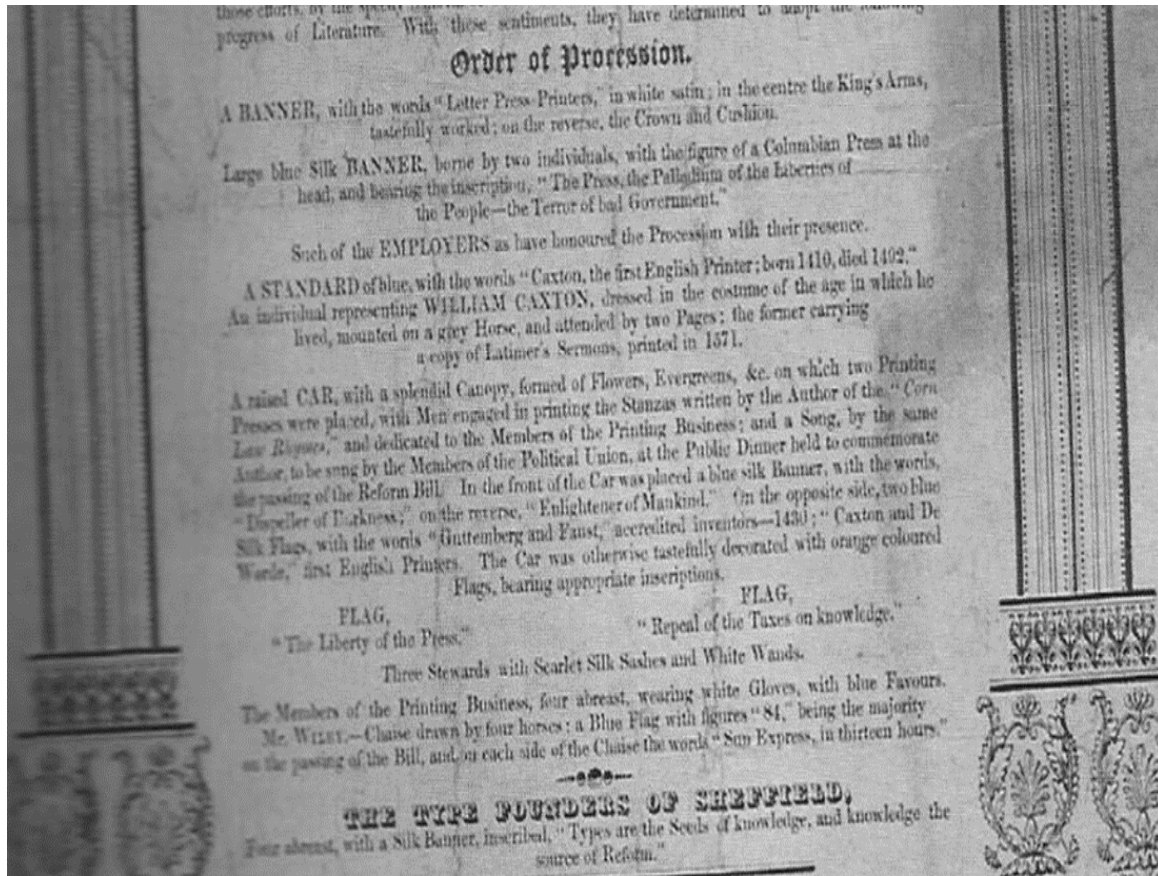 those efforts, by the
progress of Literature. With these sentiments, they have determined to adopt the following
Order of Procession.
A BANNER, with the words "Letter Press Printers," in white satin; in the centre the King's Arms,
tastefully worked; on the reverse, the Crown and Cushion.
Large blue Silk BANNER, borne by two individuals, with the figure of a Columbian Press at the
head, and bearing the inscription, "The Press, the Palladium of the Liberties of
the People—the Terror of bad Government."
Such of the EMPLOYERS as have honoured the Procession with their presence.
A STANDARD of blue, with the words "Caxton, the first English Printer; born 1410, died 1492."
An individual representing WILLIAM CAXTON, dressed in the costume of the age in which he
lived, mounted on a grey Horse, and attended by two Pages; the former carrying
a copy of Latimer's Sermons, printed in 1571.
A raised CAR, with a splendid Canopy, formed of Flowers, Evergreens, &c. on which two Printing
Presses were placed, with Men engaged in printing the Stanzas written by the Author of the "Corn
Law Rhymes," and dedicated to the Members of the Printing Business; and a Song, by the same
Author, to be sung by the Members of the Political Union, at the Public Dinner held to commemorate
the passing of the Reform Bill. In the front of the Car was placed a blue silk Banner, with the words,
"Dispeller of Darkness;" on the reverse, "Enlightener of Mankind." On the opposite side, two blue
Silk Flags, with the words "Guttemberg and Faust," accredited inventors—1430; "Caxton and De
Worde," first English Printers. The Car was otherwise tastefully decorated with orange coloured
Flags, bearing appropriate inscriptions.
FLAG, FLAG,
"The Liberty of the Press." "Repeal of the Taxes on knowledge."
Three Stewards with Scarlet Silk Sashes and White Wands.
The Members of the Printing Business, four abreast, wearing white Gloves, with blue Favours.
Mr. —Chaise drawn by four horses; a Blue Flag with figures "84," being the majority
on the passing of the Bill, and on each side of the Chaise the words "Sun Express, in thirteen hours."
THE TYPE FOUNDERS OF SHEFFIELD,
Four abreast, with a Silk Banner, inscribed, "Types are the Seeds of knowledge, and knowledge the
source of Reform."